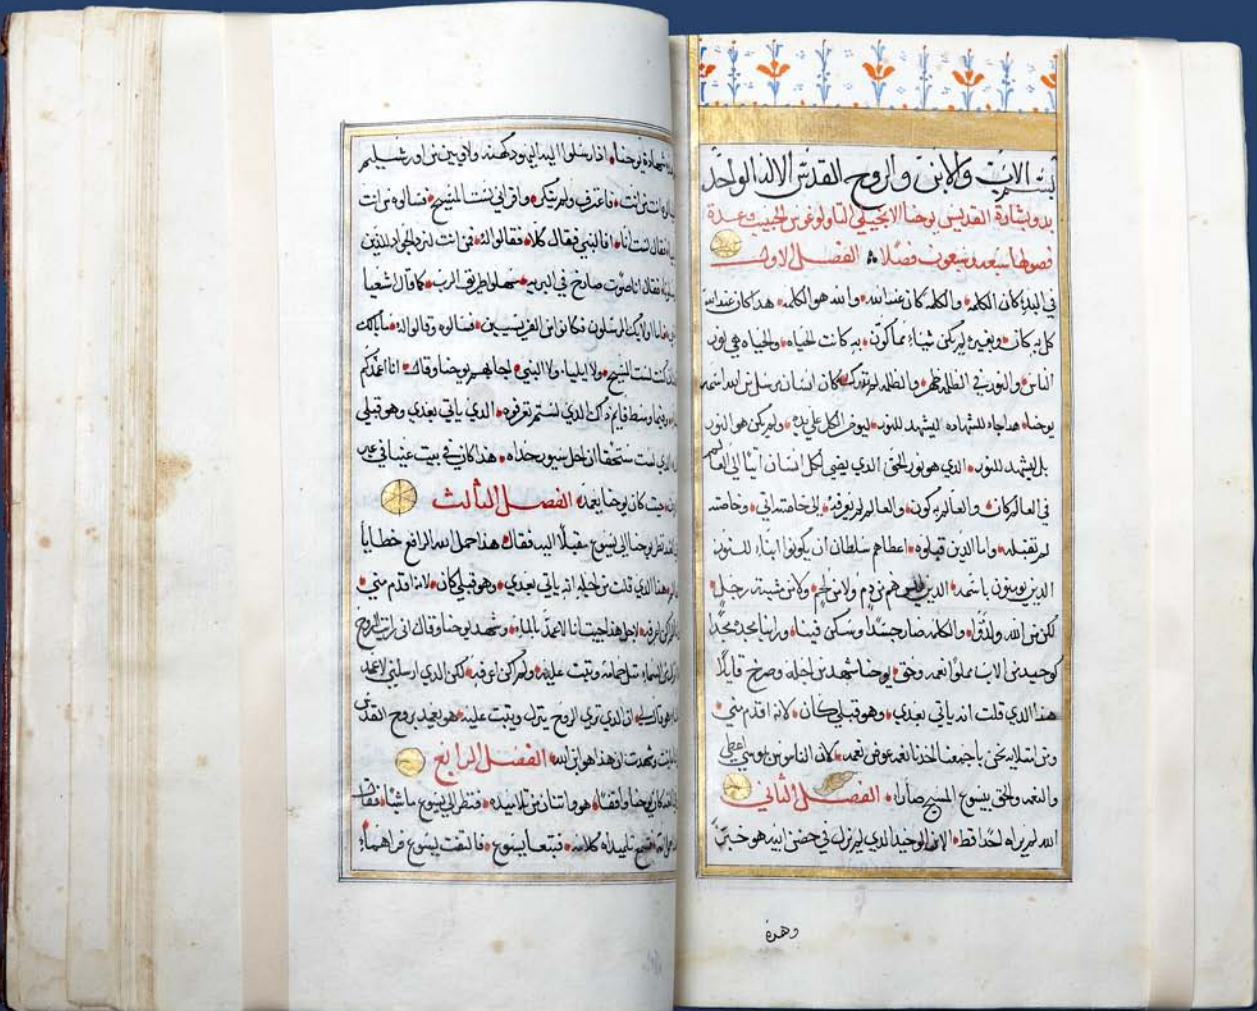 بسم الاب والابن والروح القدس الاله الواحد
بدو بشارة القديس يوحنا الانجيلي التاولوغوس الحبيب وعدة
فصولها سبعه وسبعون فصلا الفصل الاول
في البدء كان الكلمه والكلمه كان عند الله والله هو الكلمه هدا كان عند الله
كل به كان وبغيره لم يكن شياء مما كون به كانت الحياه والحياه هي نور
الناس والنور في الظلمه ظهر والظلمه لم تدركه كان انسان مرسل من الله اسمه
يوحنا هدا جاء للشهاده ليشهد للنور ليومن الكل علي يده ولم يكن هو النور
بل ليشهد للنور الدي هو نور الحق الدي يضي لكل انسان اتيا الي العالم
في العالم كان والعالم به كون والعالم لم يعرفه الي خاصته اتي وخاصته
لم تقبله واما الدين قبلوه اعطاهم سلطان ان يكونوا ابناء الله
الدين يومنون باسمه الدين ليس هم من دم ولا من لحم ولا من مشية رجل
لكن من الله ولدوا والكلمه صار جسدا وسكن فينا وراينا مجده مجدا
كوحيد من الاب مملوا نعمه وحق يوحنا شهد من اجله وصرخ قايلا
هدا الدي قلت انه ياتي بعدي وهو قبلي كان لانه اقدم مني
ومن امتلايه نحن باجمعنا اخدنا نعمه عوض نعمه لان الناموس بموسي اعطي
والنعمه والحق بيسوع المسيح صارا الفصل الثاني
الله لم يراه احدا قط الابن الوحيد الدي لم يزل في حضن ابيه هو خبر
وهده
شهادة يوحنا اذ ارسلوا اليه اليهود كهنه ولاويين من اورشليم
انت من انت فاعترف ولم ينكر واقر اني لست المسيح فسالوه من انت
فقال لست انا النبي فقال كلا فقالوا له فمن انت لنرد الجواب للدين
فقال انا صوت صارخ في البريه سهلوا طريق الرب كما قال اشعيا
اوليك المرسلون فكانوا من الفريسيين فسالوه وقالوا له ما بالك
كنت لست المسيح ولا ايليا ولا النبي اجابهم يوحنا وقال انا اعمدكم
وفيما وسط قايم داك الدي لستم تعرفوه الدي ياتي بعدي وهو قبلي
لست مستحقا ان احل سيور حداه هدا كان في بيت عنيا في عبر
حيث كان يوحنا يعمد الفصل الثالث
نظر يوحنا الي يسوع مقبلا اليه فقال هدا حمل الله الرافع خطايا
هدا الدي قلت من اجله انه ياتي بعدي وهو قبلي كان لانه اقدم مني
اكن اعرفه لاجل هدا جيت انا لاعمد بالماء وشهد يوحنا وقال اني رايت الروح
من السماء مثل حمامه وثبت عليه ولم اكن اعرفه لكن الدي ارسلني لاعمد
ان الدي تري الروح ينزل ويثبت عليه هو يعمد بروح القدس
وشهدت ان هدا هو ابن الله الفصل الرابع
كان يوحنا واقفا هو واتنان من تلاميده فنظر الي يسوع ماشيا فقال
تلميداه كلامه فتبعا يسوع فالتفت يسوع فراهما